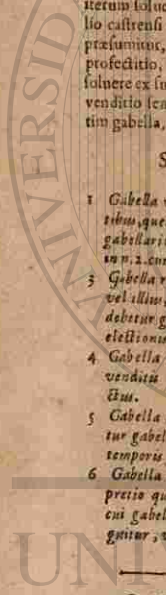 iterum solue
lio castrensi
præsumitur,
profectitio,
soluere ex su
venditio sen
tim gabella.
S
1 Gabella v
tibus, que
gabellari
in n. 2. cum
3 Gabella r
vel illius,
debetur g
electionis
4 Gabella
venditi
ctus.
5 Gabella
tur gabel
temporis
6 Gabella
pretio qu
cui gabel
guitur, v
UNI
VERSID